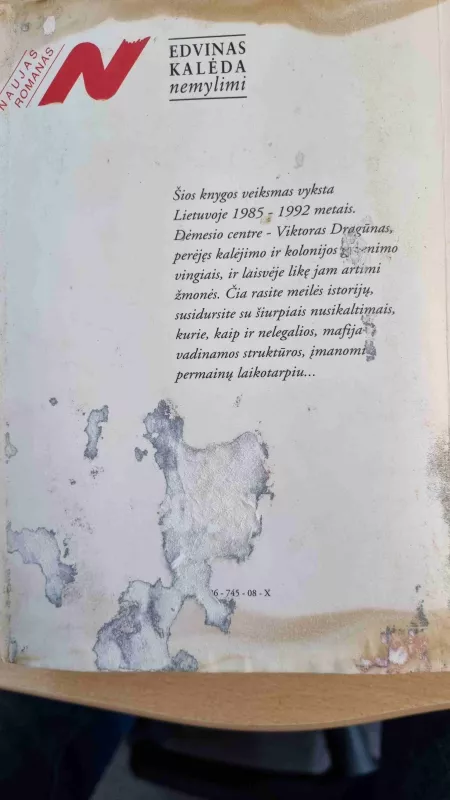 NAUJAS
ROMANAS
N
EDVINAS
KALĖDA
nemylimi
Šios knygos veiksmas vyksta
Lietuvoje 1985 - 1992 metais.
Dėmesio centre - Viktoras Dragūnas,
perėjęs kalėjimo ir kolonijos
vingiais, ir laisvėje likę jam artimi
žmonės. Čia rasite meilės istorijų,
susidursite su šiurpiais nusikaltimais,
kurie, kaip ir nelegalios, mafija
vadinamos struktūros, įmanomi
permainų laikotarpiu...
6 - 745 - 08 - X